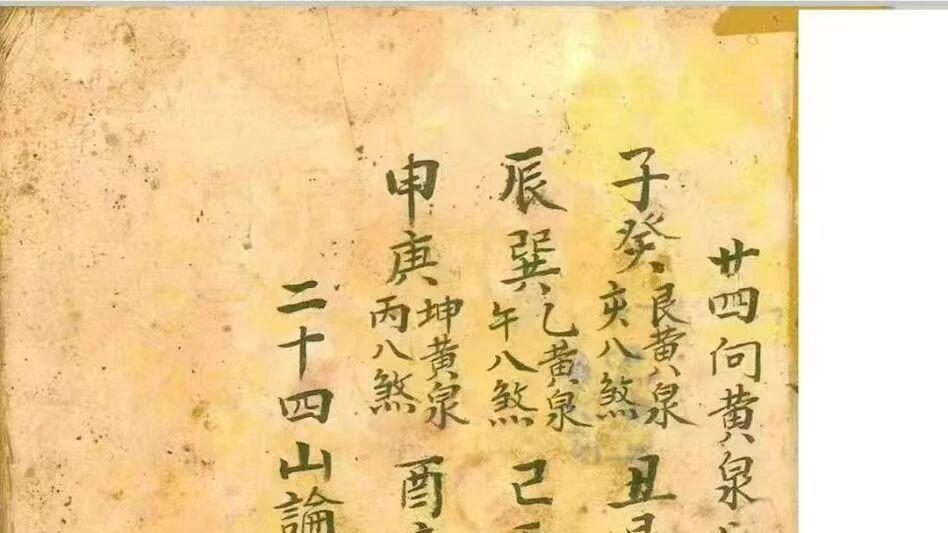 廿四向黄泉
子癸艮黄泉亥八煞丑
辰巽乙黄泉午八煞己
申庚坤黄泉丙八煞酉
二十四山論